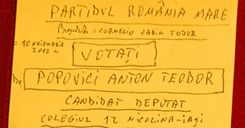 PARTIDUL ROMÂNIA MARE
CORNELIU VADIM TUDOR
VOTAȚI
POPOVICI ANTON TEODOR
CANDIDAT DEPUTAT
COLEGIUL 12 NICOLINA-IAȘI